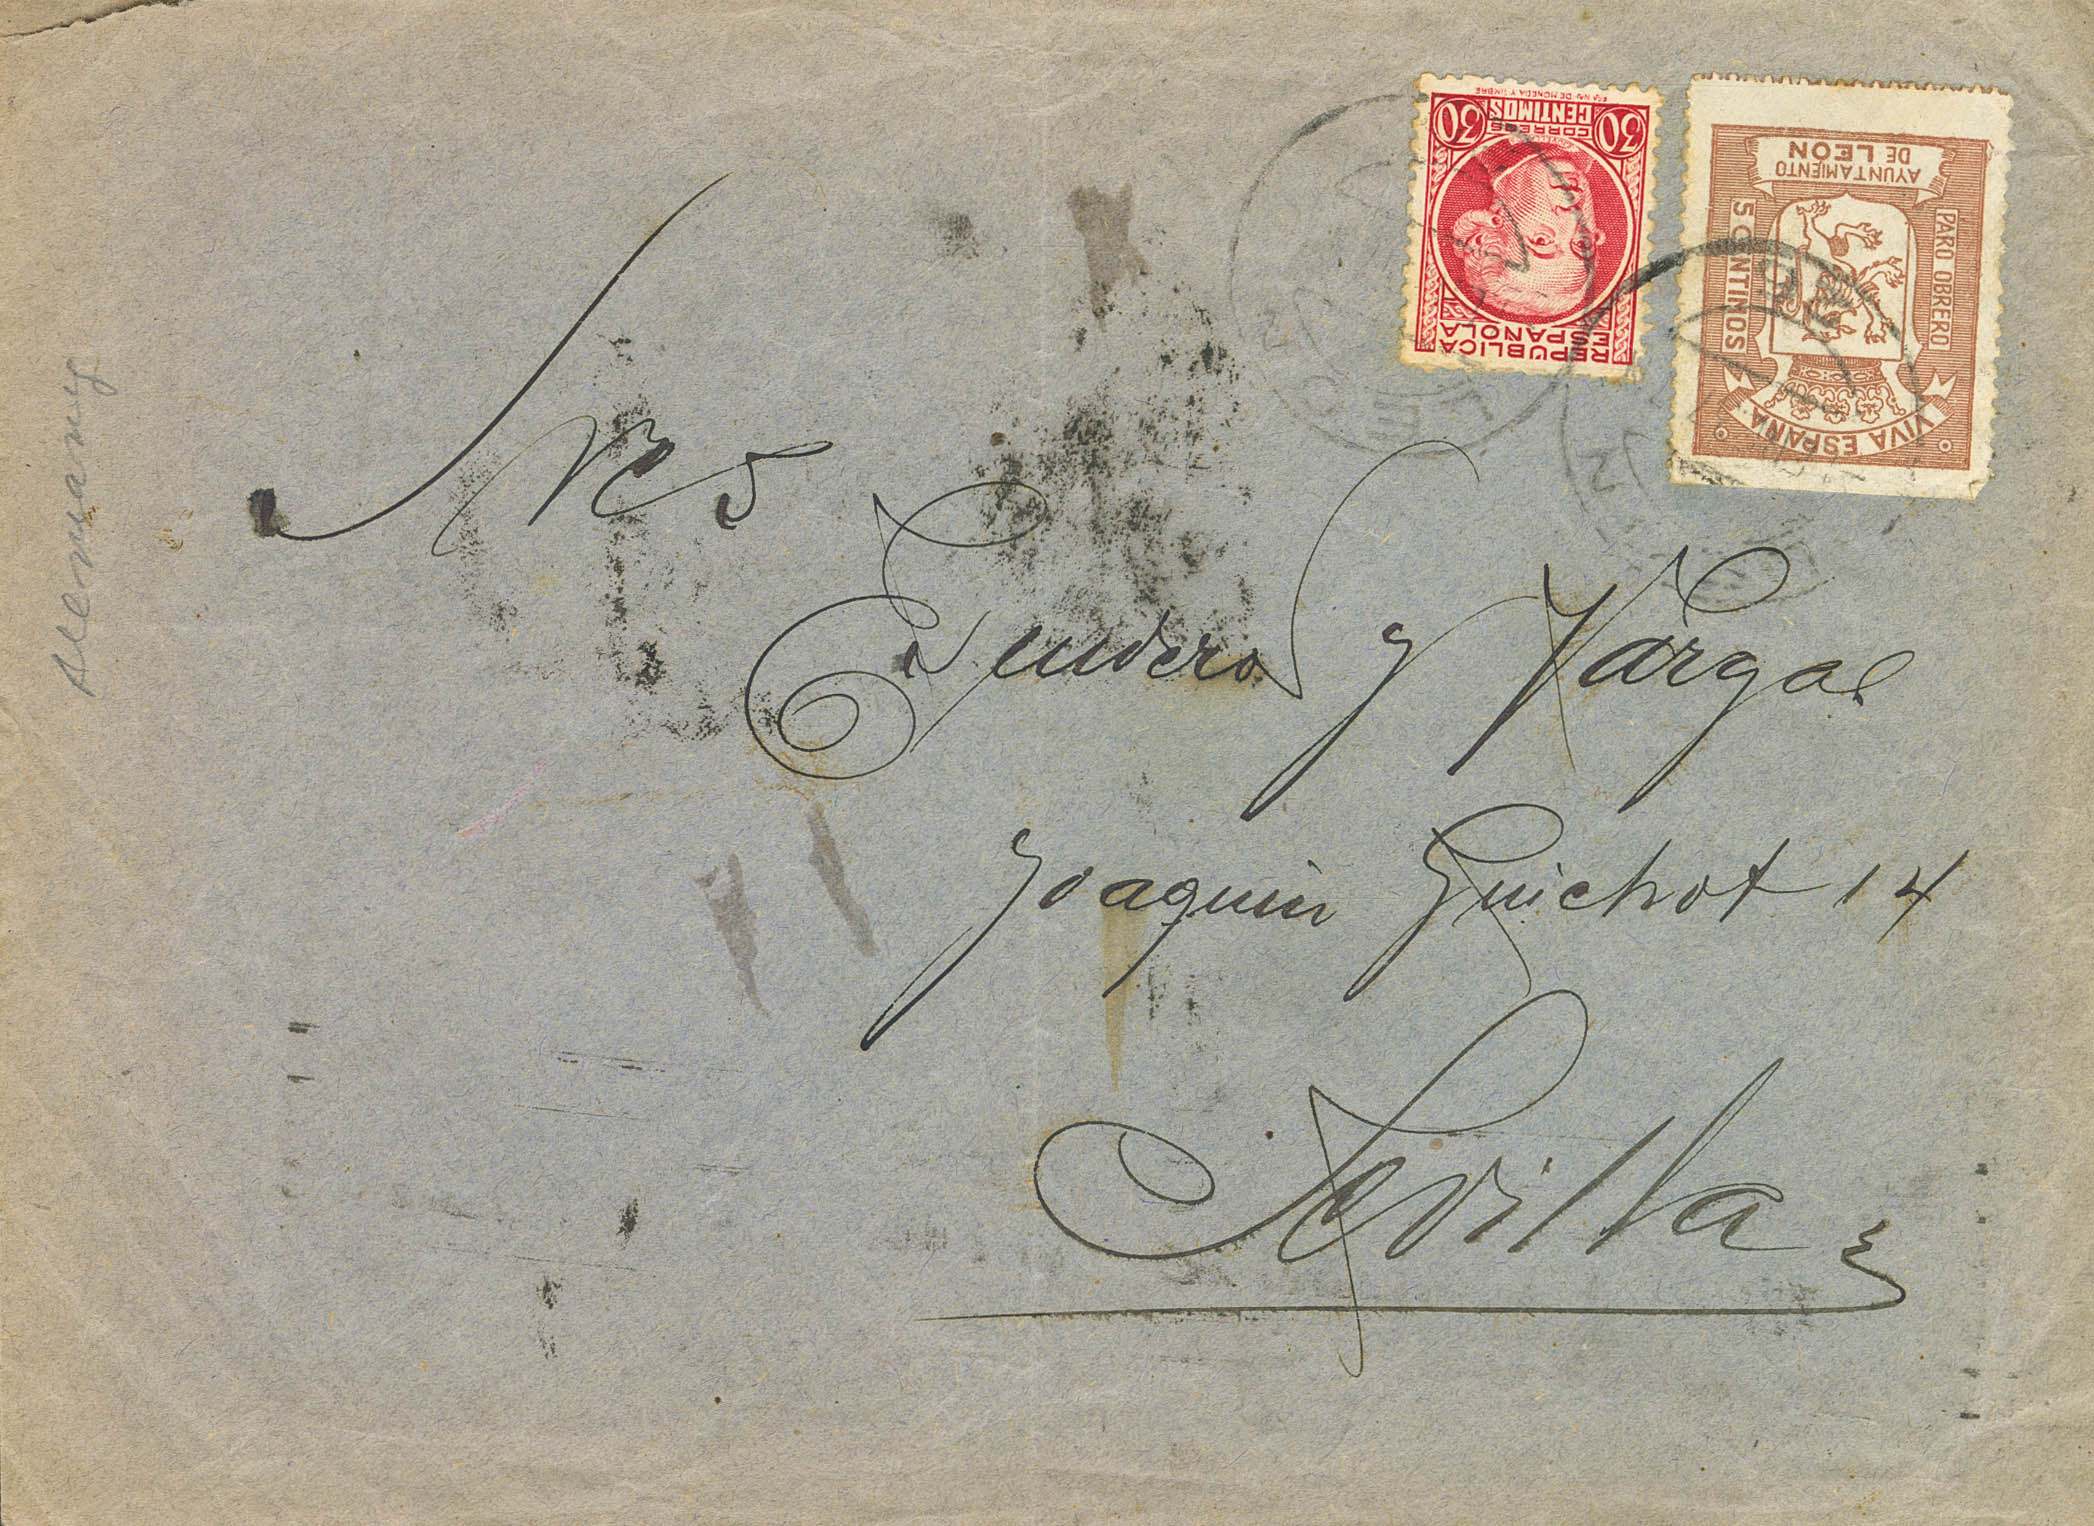 REPUBLICA
ESPAÑOLA
CORREOS
30 CENTIMOS 30
FCA NAL DE MONEDA Y TIMBRE
AYUNTAMIENTO
DE LEON
PARO OBRERO
5 CENTIMOS
VIVA ESPAÑA
y Vargas
Joaquin Guichot 14
Sevilla